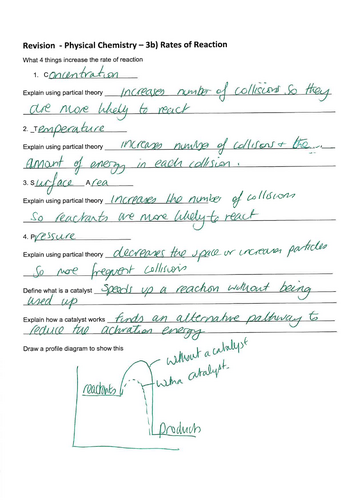 Revision - Physical Chemistry – 3b) Rates of Reaction
What 4 things increase the rate of reaction
1. Concentration
Explain using partical theory increases number of collisions so they
are more likely to react
2. Temperature
Explain using partical theory increases number of collisions + the
amount of energy in each collision.
3. Surface Area
Explain using partical theory Increases the number of collisions
so reactants are more likely to react
4. Pressure
Explain using partical theory decreases the space or increases particles
so more frequent collisions
Define what is a catalyst Speeds up a reaction without being
used up
Explain how a catalyst works finds an alternative pathway to
reduce the activation energy
Draw a profile diagram to show this
without a catalyst
with a catalyst.
reactants
products